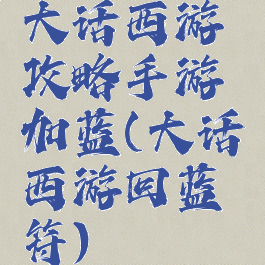 大话西游
攻略手游
加蓝(大话
西游回蓝
符)